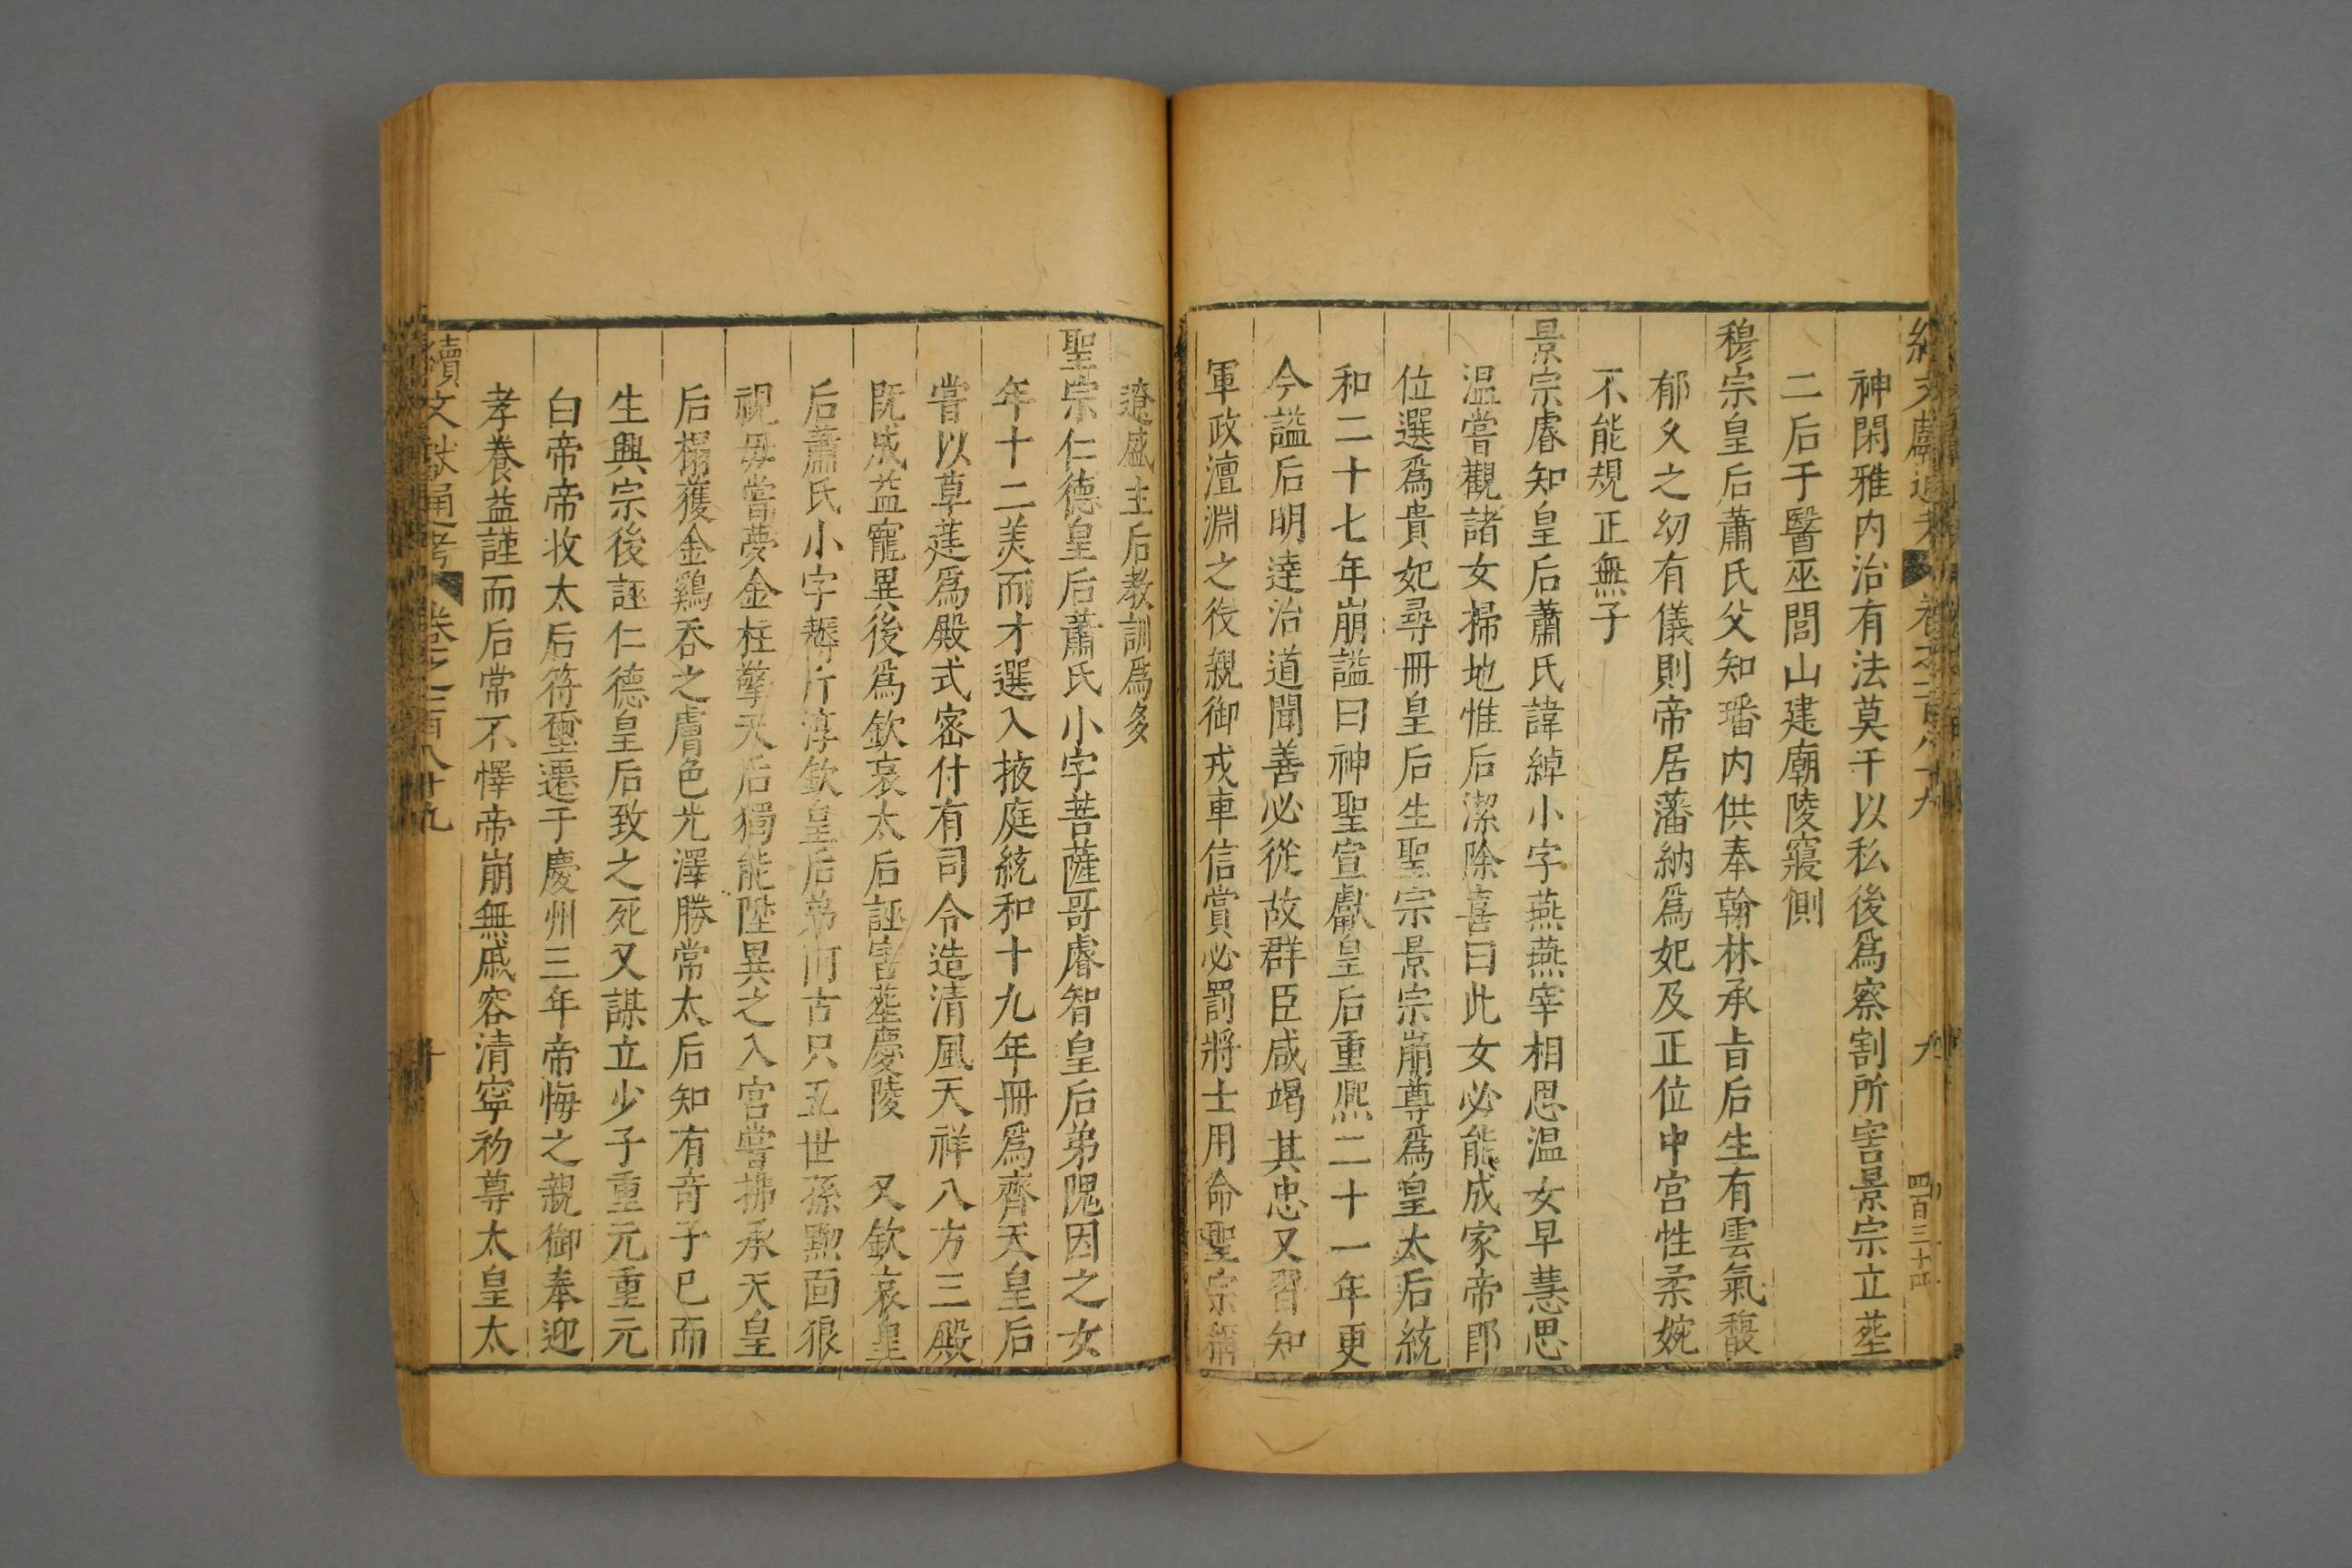 續文獻通考 卷之二百八十九 九 四百三十四
神閑雅内治有法莫干以私後爲察割所害景宗立葬
二后于醫巫閭山建廟陵寢側
穆宗皇后蕭氏父知璠内供奉翰林承㫖后生有雲氣馥
郁久之幼有儀則帝居藩納爲妃及正位中宫性柔婉
不能規正無子
景宗睿知皇后蕭氏諱綽小字燕燕宰相思温女早慧思
温嘗觀諸女掃地惟后潔除喜曰此女必能成家帝即
位選爲貴妃尋冊皇后后生聖宗景宗崩尊爲皇太后統
和二十七年崩謚曰神聖宣獻皇后重熙二十一年更
今謚后明達治道聞善必從故群臣咸竭其忠又習知
軍政澶淵之役親御戎車信賞必罰將士用命聖宗稱
遼盛主后教訓爲多
聖宗仁德皇后蕭氏小字菩薩哥睿智皇后弟隗因之女
年十二美而才選入掖庭統和十九年冊爲齊天皇后
嘗以草莛爲殿式宻付有司令造清風天祥八方三殿
既成益寵異後爲欽哀太后誣害塟慶陵　又欽哀皇
后蕭氏小字耨斤淳欽皇后弟阿古只五世孫黝面狠
視毋嘗夢金柱擎天后獨能陞異之入宫嘗拂承天皇
后榻獲金鷄吞之膚色光澤勝常太后知有奇子已而
生興宗後誣仁德皇后致之死又謀立少子重元重元
白帝帝收太后符璽遷于慶州三年帝悔之親御奉迎
孝養益謹而后常不懌帝崩無戚容清寧初尊太皇太
續文獻通考 卷之二百八十九 十